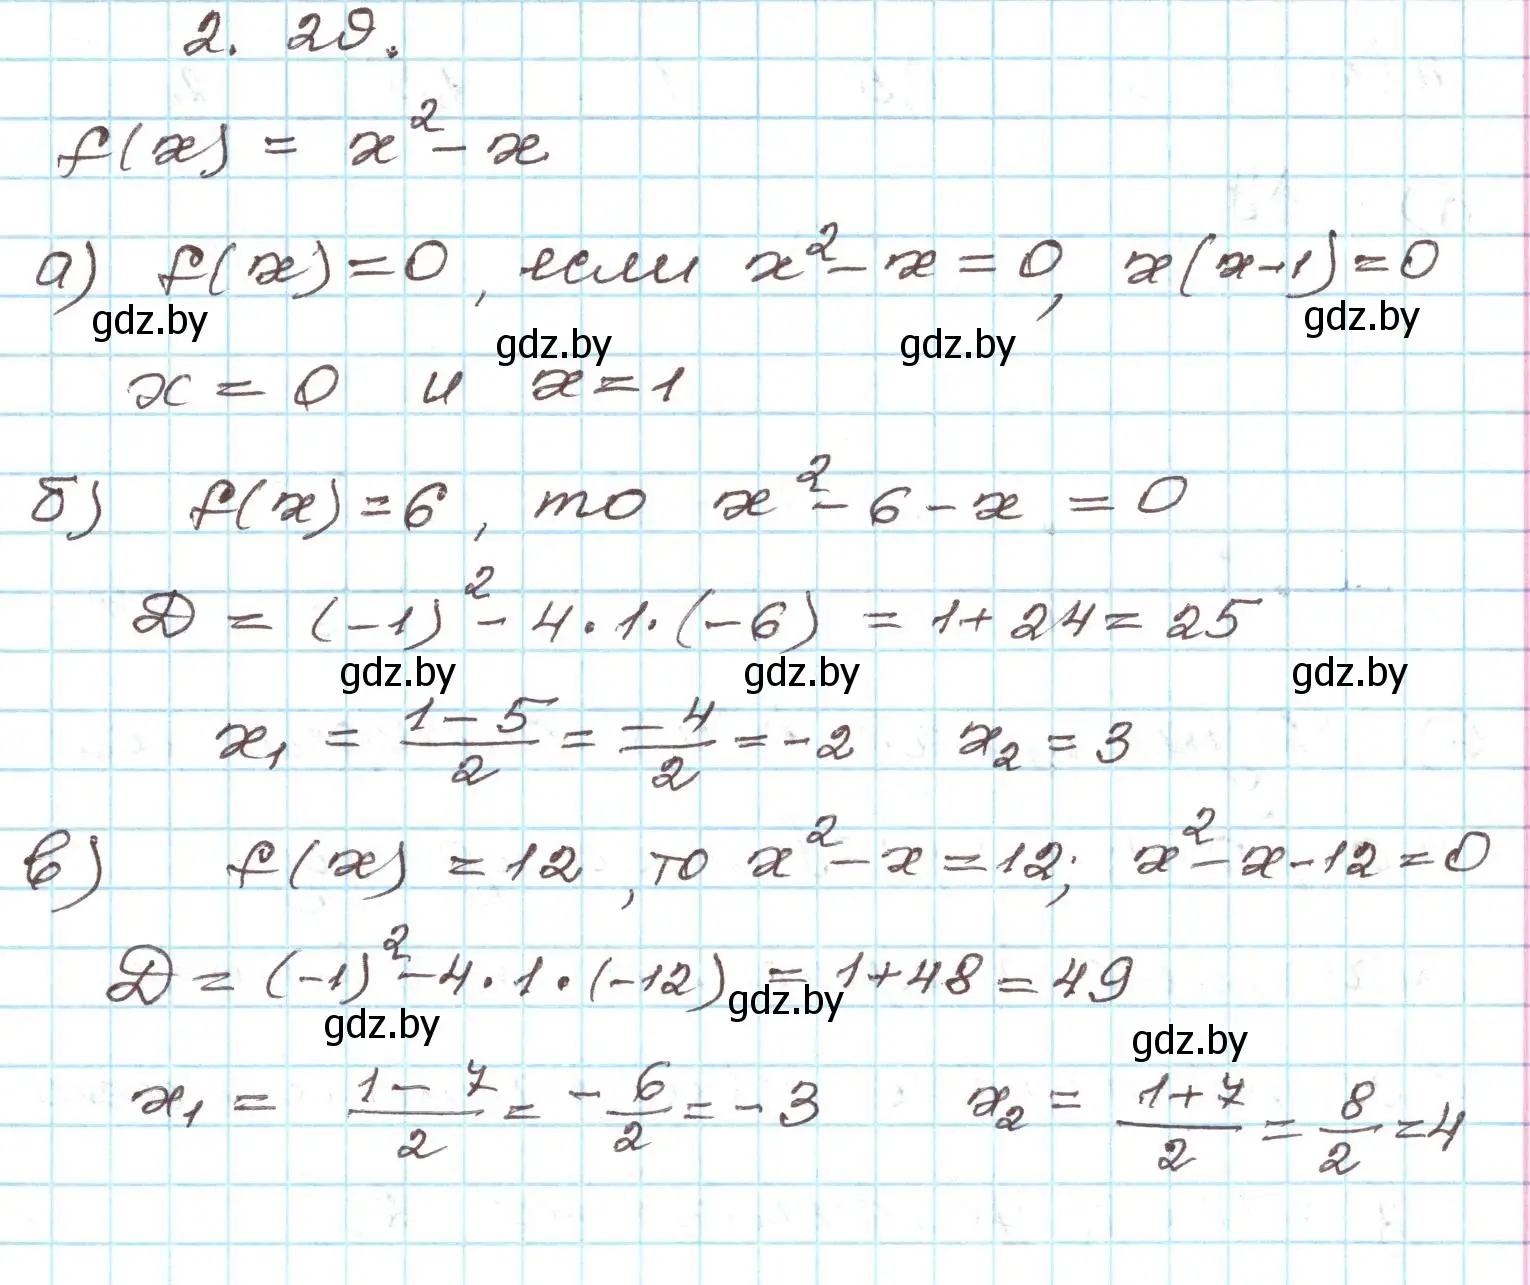 2. 29.
f(x) = x² - x
а) f(x) = 0, если x² - x = 0, x(x-1) = 0
gdz.by gdz.by gdz.by gdz.by
x = 0 и x = 1
б) f(x) = 6, то x² - 6 - x = 0
D = (-1)² - 4·1·(-6) = 1 + 24 = 25
gdz.by gdz.by gdz.by
x₁ = (1 - 5)/2 = -4/2 = -2 x₂ = 3
в) f(x) = 12, то x² - x = 12; x² - x - 12 = 0
D = (-1)² - 4·1·(-12) = 1 + 48 = 49
gdz.by gdz.by gdz.by
x₁ = (1 - 7)/2 = -6/2 = -3 x₂ = (1 + 7)/2 = 8/2 = 4